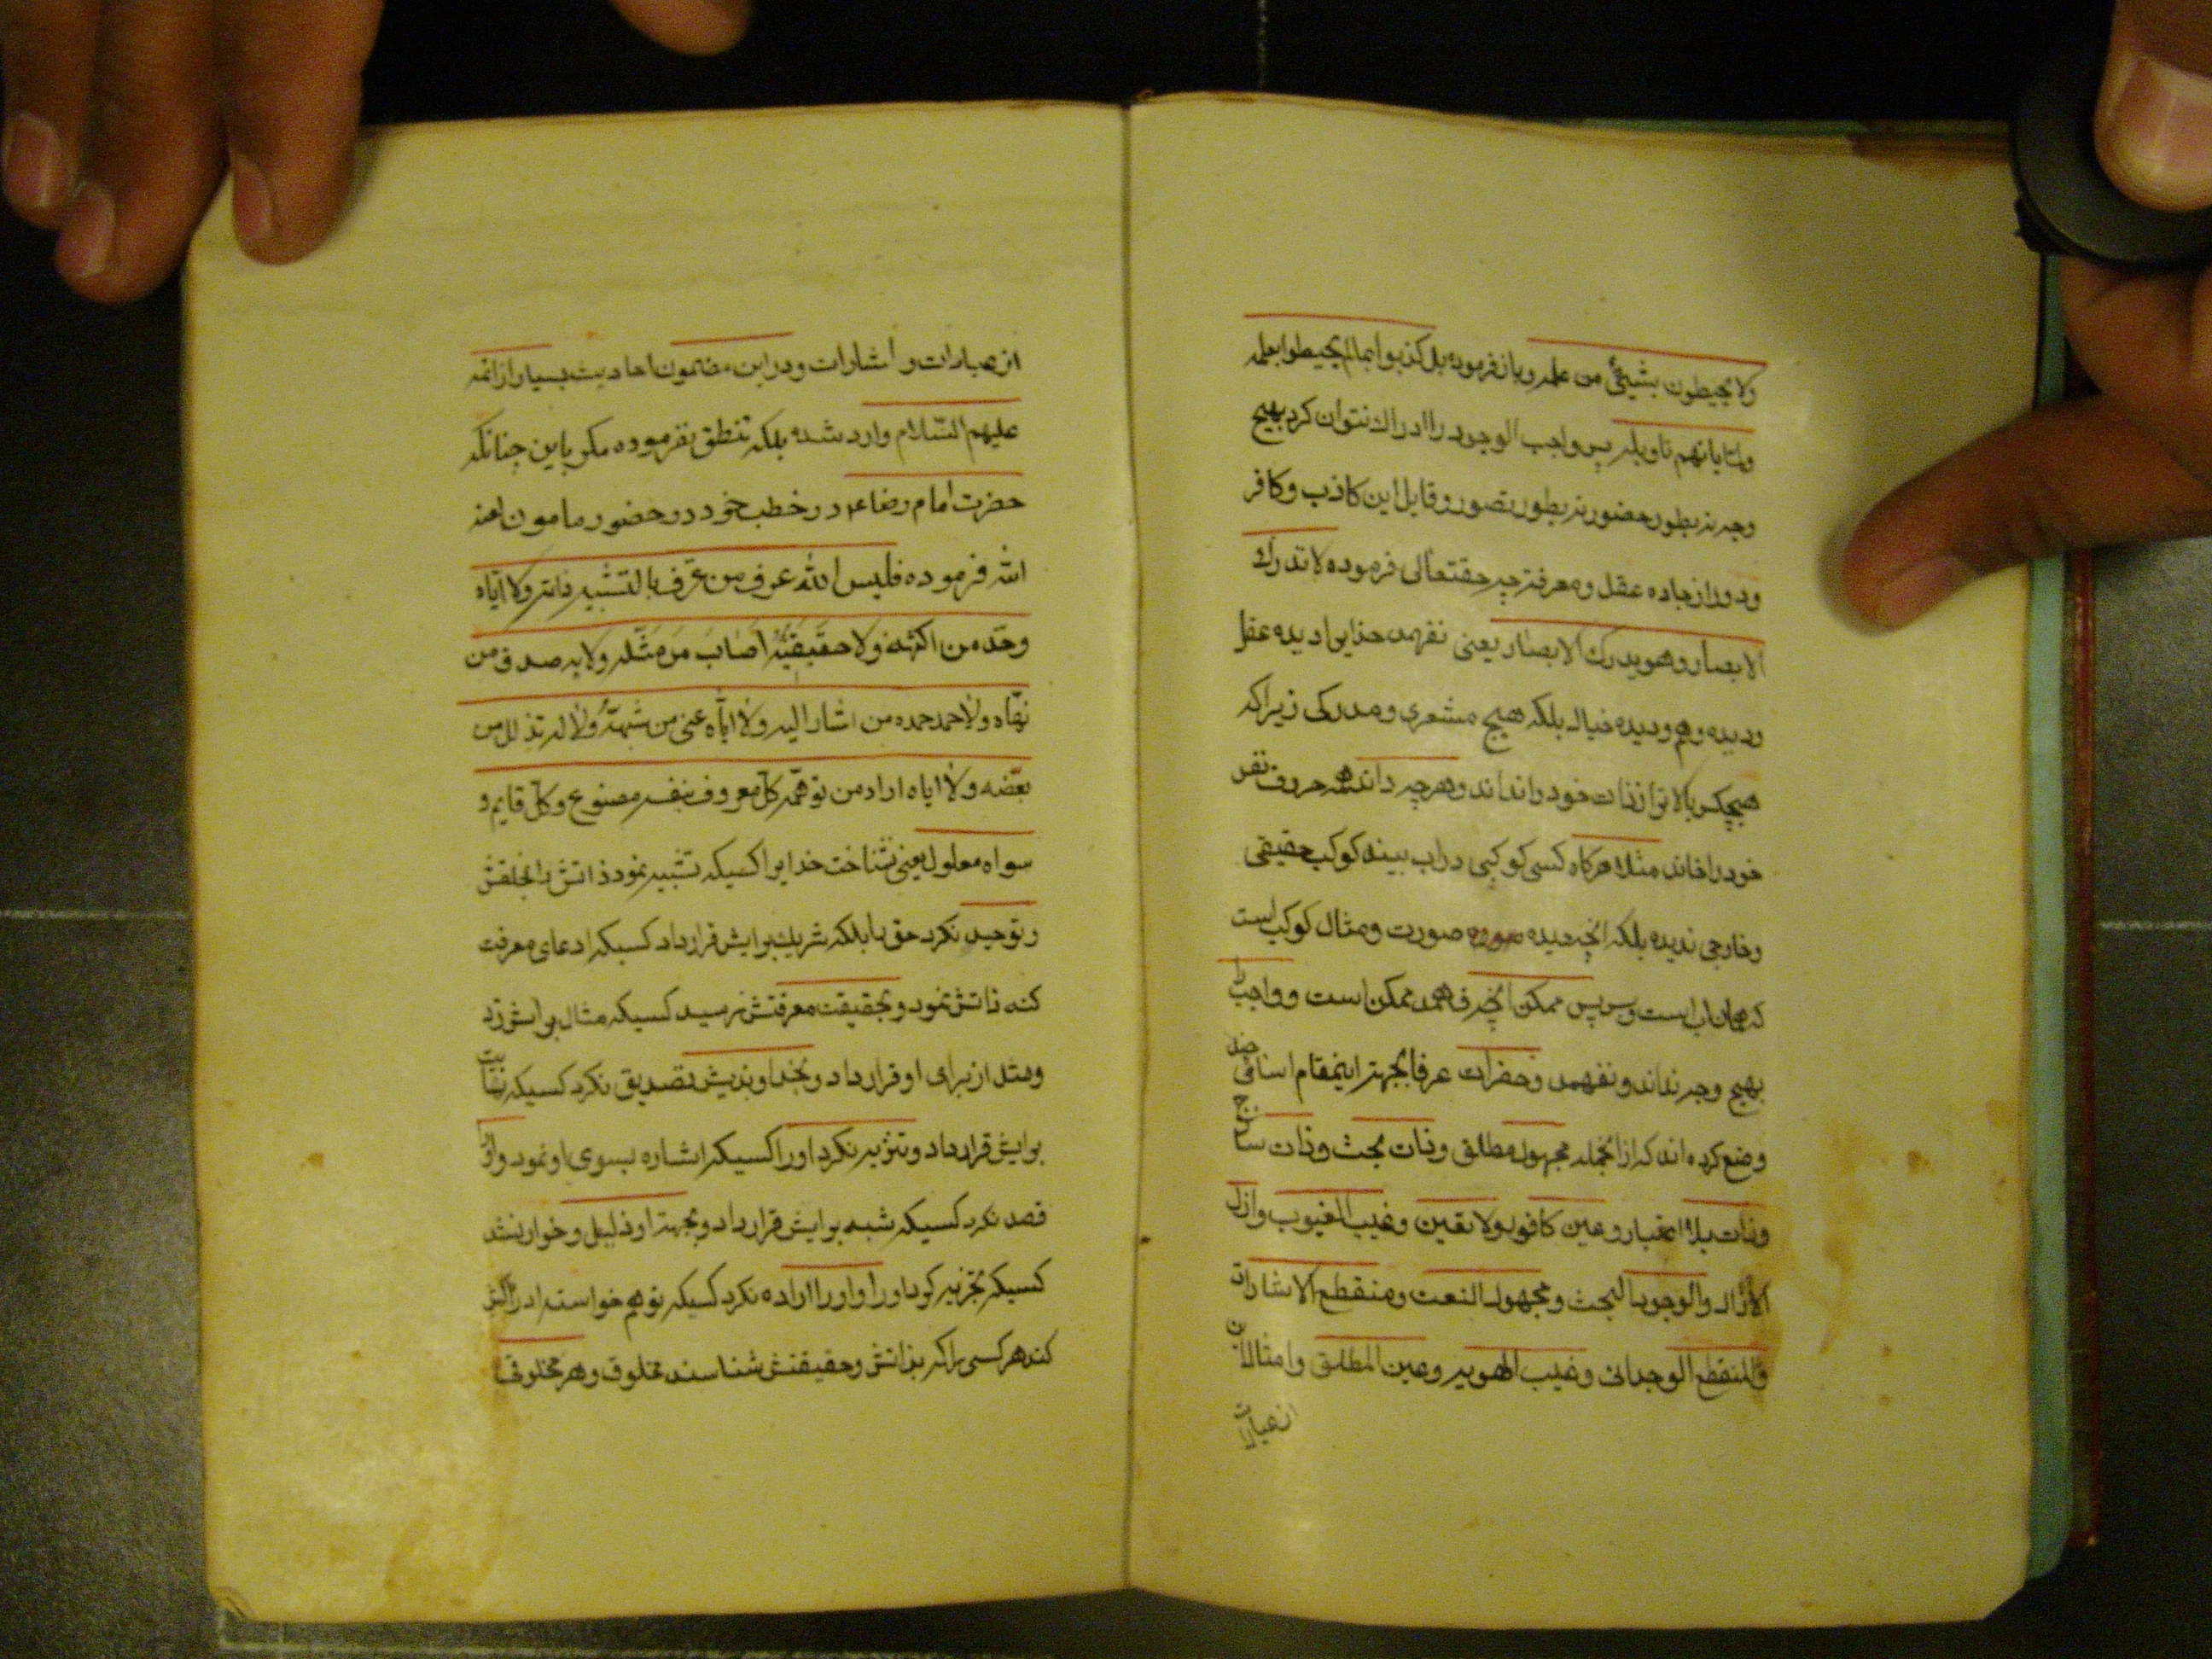 ولا یحیطون بشیئ من علمه و باز فرموده بل کذبوا بمالم یحیطوا بعلمه
ولما یاتهم تاویله پس واجب الوجود را ادراک نتوان کرد بهیچ
وجه نه بطور حضور نه بطور تصور و قایل این کاذب و کافر
و دور از جاده عقل و معرفت چه حقتعالی فرموده لا تدرک
الابصار و هو یدرک الابصار یعنی نفهمد خدایرا دیده عقل
و دیده وهم و دیده خیال بلکه هیچ مشعری و مدرکی زیراکه
هیچکس بالاتر از ذات خود را نداند و هرچه داند همه حروف نفس
خود را خاند مثلا هرکاه کسی کوکبی در اب بیند کوکب حقیقی
و خارجی ندیده بلکه انچه دیده صورت و مثال کوکب است
که همان اب است و پس ممکن انچه فهمد ممکن است و واجب را
بهیچ وجه نداند و نفهمد و حضرات عرفا بجهتر اینمقام اسنافی چند
وضع کرده اند که از انجمله مجهول مطلق و ذات بحث و ذات ساذج
و ذات بلا اعتبار و عین کافور و لا تعین و غیب الغیوب و ازل
الازال والوجود البحث و مجهول النعت و منقطع الاشارات
والمنقطع الوجدانی و غیب الهویه و عین المطلق و امثال ان
از عبارات
از عبارات و اشارات و در این مضمون احادیث بسیار از ائمه
علیهم السّلام وارد شده بلکه تنطق نفرموده مکر باین چنانکه
حضرت امام رضا در خطب خود در حضور مامون لعنه
الله فرموده فلیس الله عرف من عرف بالتشبیه ذاته ولا ایاه
وحّده من اکتنهه ولا حقیقته اصاب من مثّله ولا به صدق من
نهّاه ولا حمد حمده من اشار الیه ولا ایاه عنی من شبهه ولا له تذلل من
بعّضه ولا ایاه اراد من توهّمه کل معروف بنفسه مصنوع و کل قایم و
سواه معلول یعنی نشناخت خدایرا کسیکه تشبیه نمود ذاتش بخلقش
و توحید نکرد حق را بلکه شریک برایش قرار داد کسیکه ادعای معرفت
کنه ذاتش نمود و بحقیقت معرفتش نرسید کسیکه مثال برایش زد
و مثل از برای او قرار داد و بخداوندیش تصدیق نکرد کسیکه نهایت
برایش قرار داد و تنزیه نکرد او را کسیکه اشاره بسوی او نمود و او را
قصد نکرد کسیکه شبه برایش قرار داد و بجهته او ذلیل و خوار نشد
کسیکه تجزیه کرد او را و او را اراده نکرد کسیکه توهم خواسته ادراکش
کند هر کسی را که بذاتش و حقیقتش شناسند مخلوق و هر مخلوقی